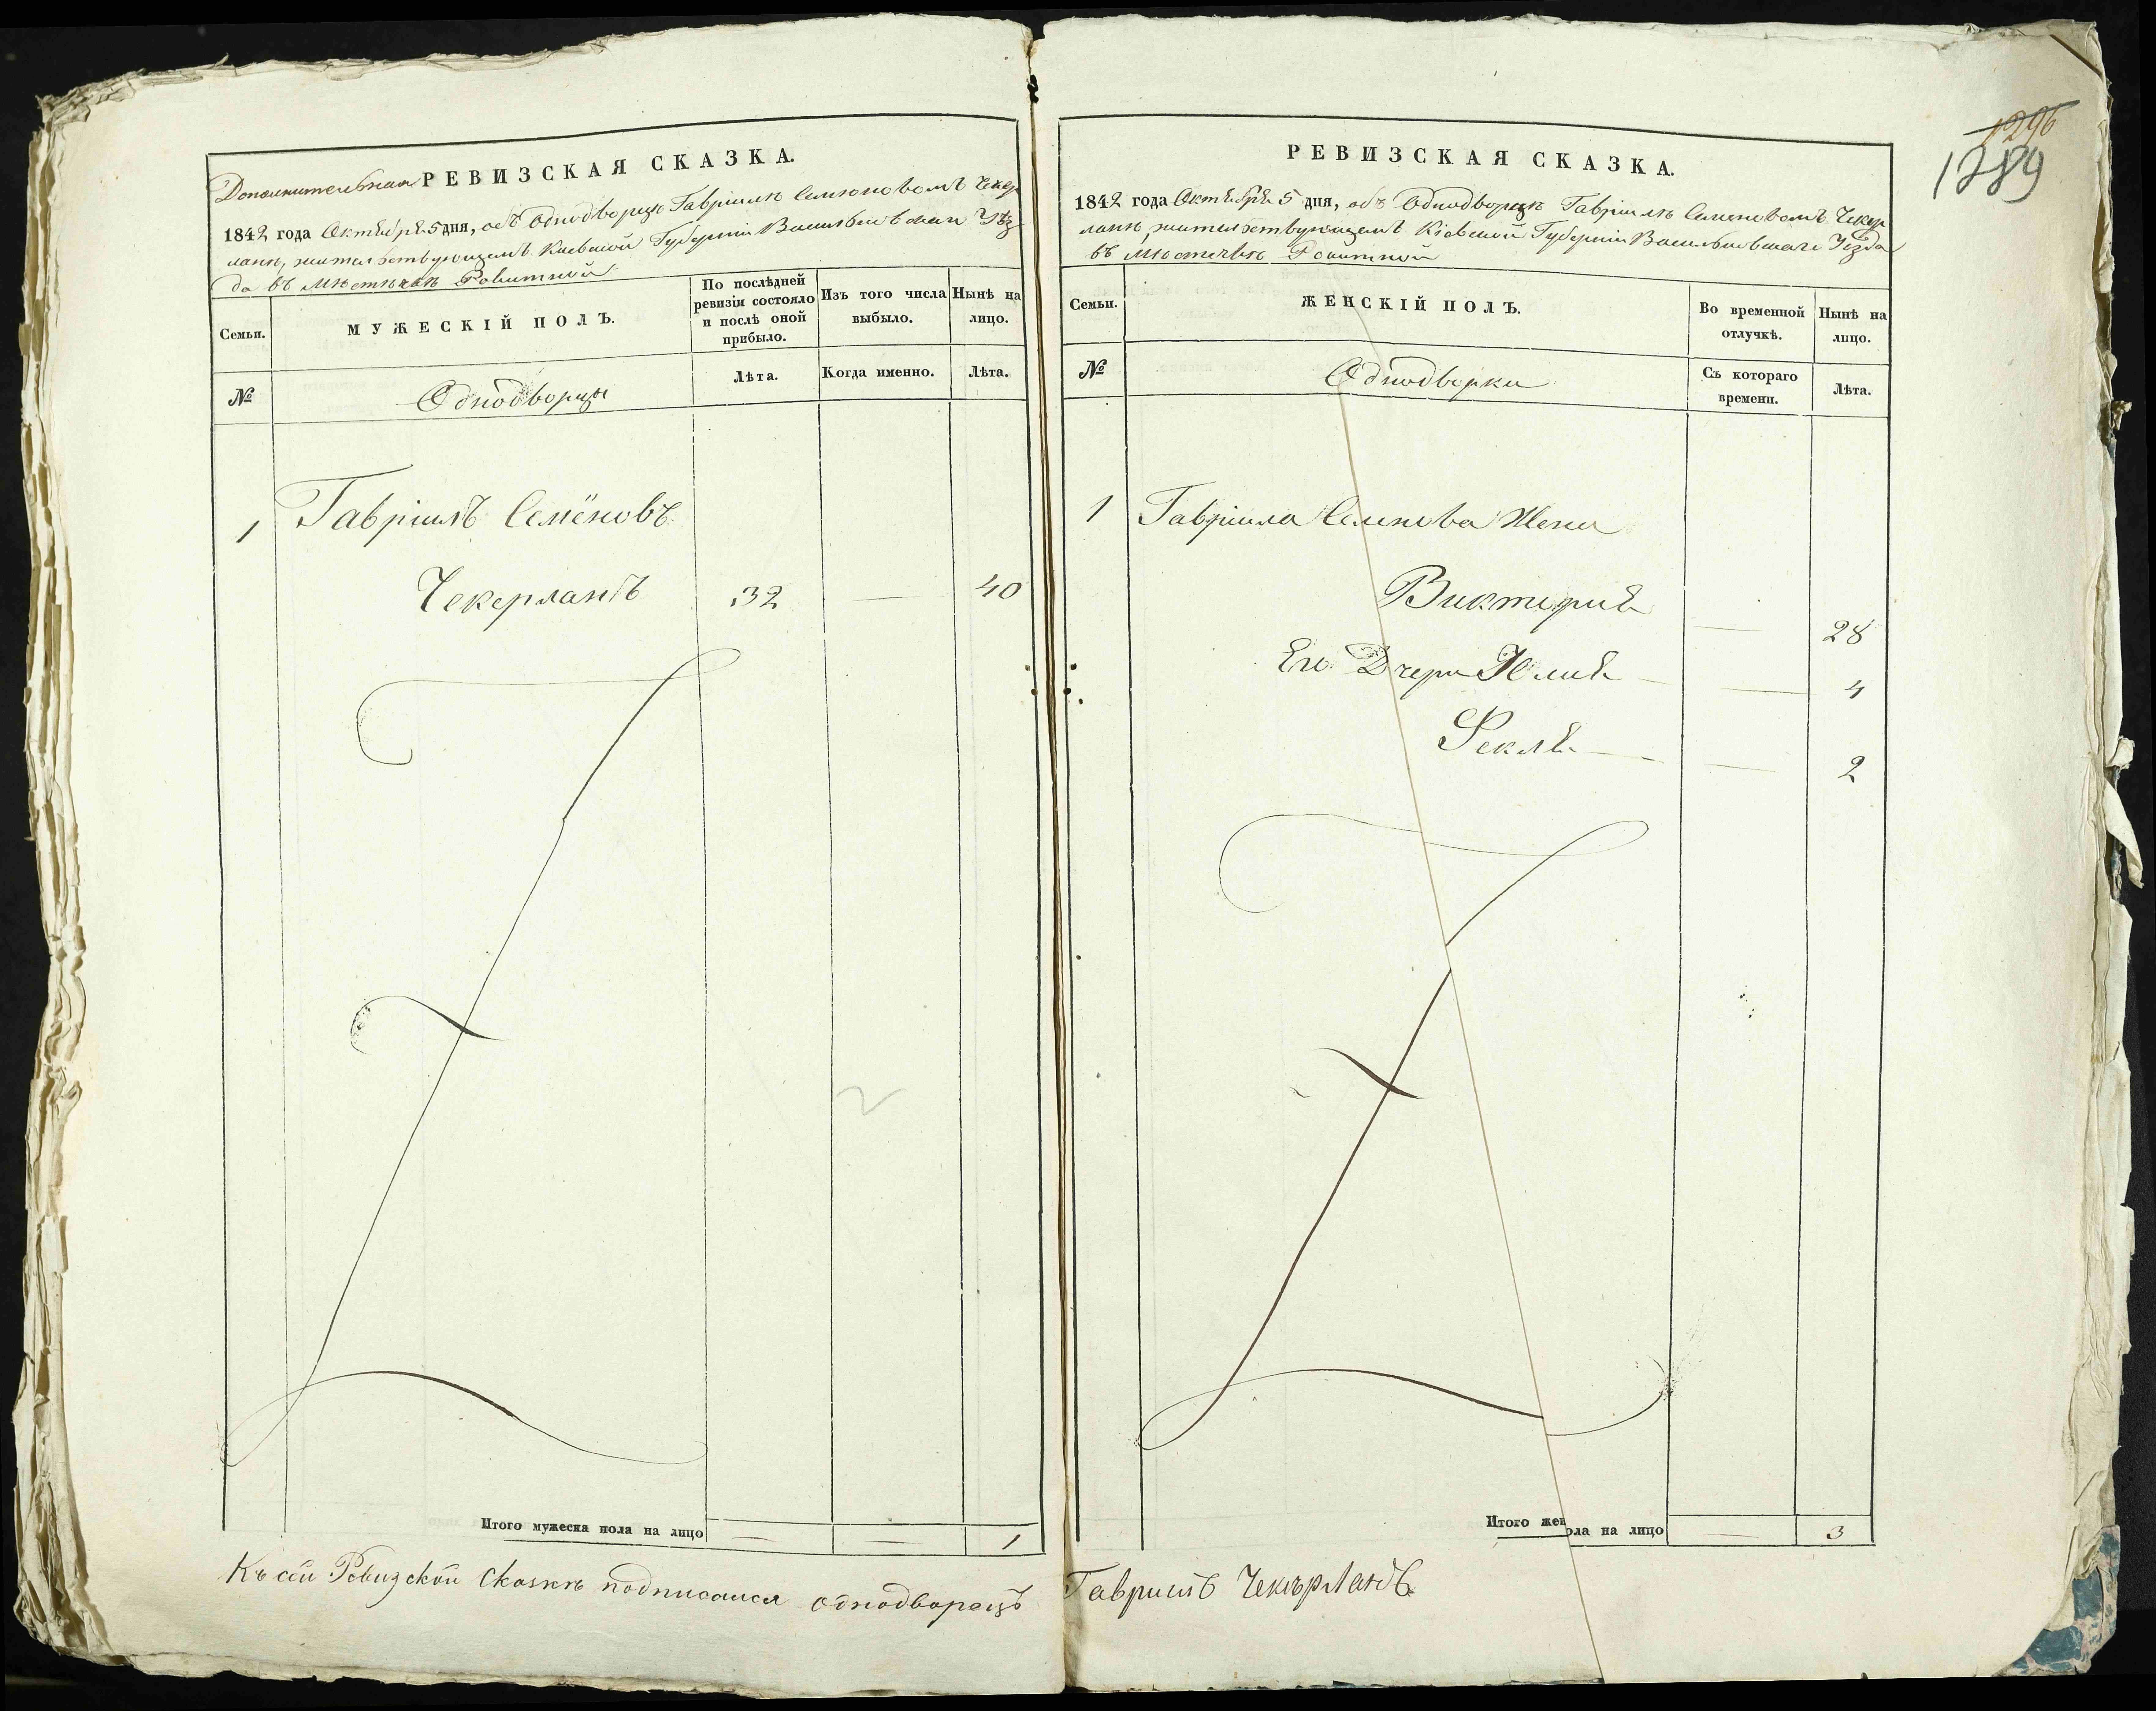 Дополнительная РЕВИЗСКАЯ СКАЗКА.
1842 года Октября 5 дня, объ Однодворцѣ Гавріилѣ Семеновомъ Чекер
ланѣ, жительствующемъ Киевской Губерніи Васильковскаго Уѣз
да въ мѣстечкѣ Рокитной
Семьи.
МУЖЕСКІЙ ПОЛЪ.
По послѣдней ревизіи состояло и послѣ оной прибыло.
Изъ того числа выбыло.
Нынѣ на лицо.
№
Однодворцы
Лѣта.
Когда именно.
Лѣта.
1 Гавріилъ Семёновъ
Чекерланъ 32 — 40
Итого мужеска пола на лицо — — 1
Къ сей Ревизской Сказкѣ подписался однодворецъ
1296
1289
РЕВИЗСКАЯ СКАЗКА.
1842 года Октября 5 дня, объ Однодворцѣ Гавріилѣ Семеновомъ Чекер
ланѣ, жительствующемъ Кіевской Губерніи Васильковскаго Уѣзда
въ мѣстечкѣ Рокитной
Семьи.
ЖЕНСКІЙ ПОЛЪ.
Во временной отлучкѣ.
Нынѣ на лицо.
№
Однодворки
Съ котораго времени.
Лѣта.
1 Гавріила Семенова Жена
Викторія — 28
Его Дчери Юлія — 4
Фекля — 2
Итого жен ола на лицо — 3
Гавриилъ Чекерланъ